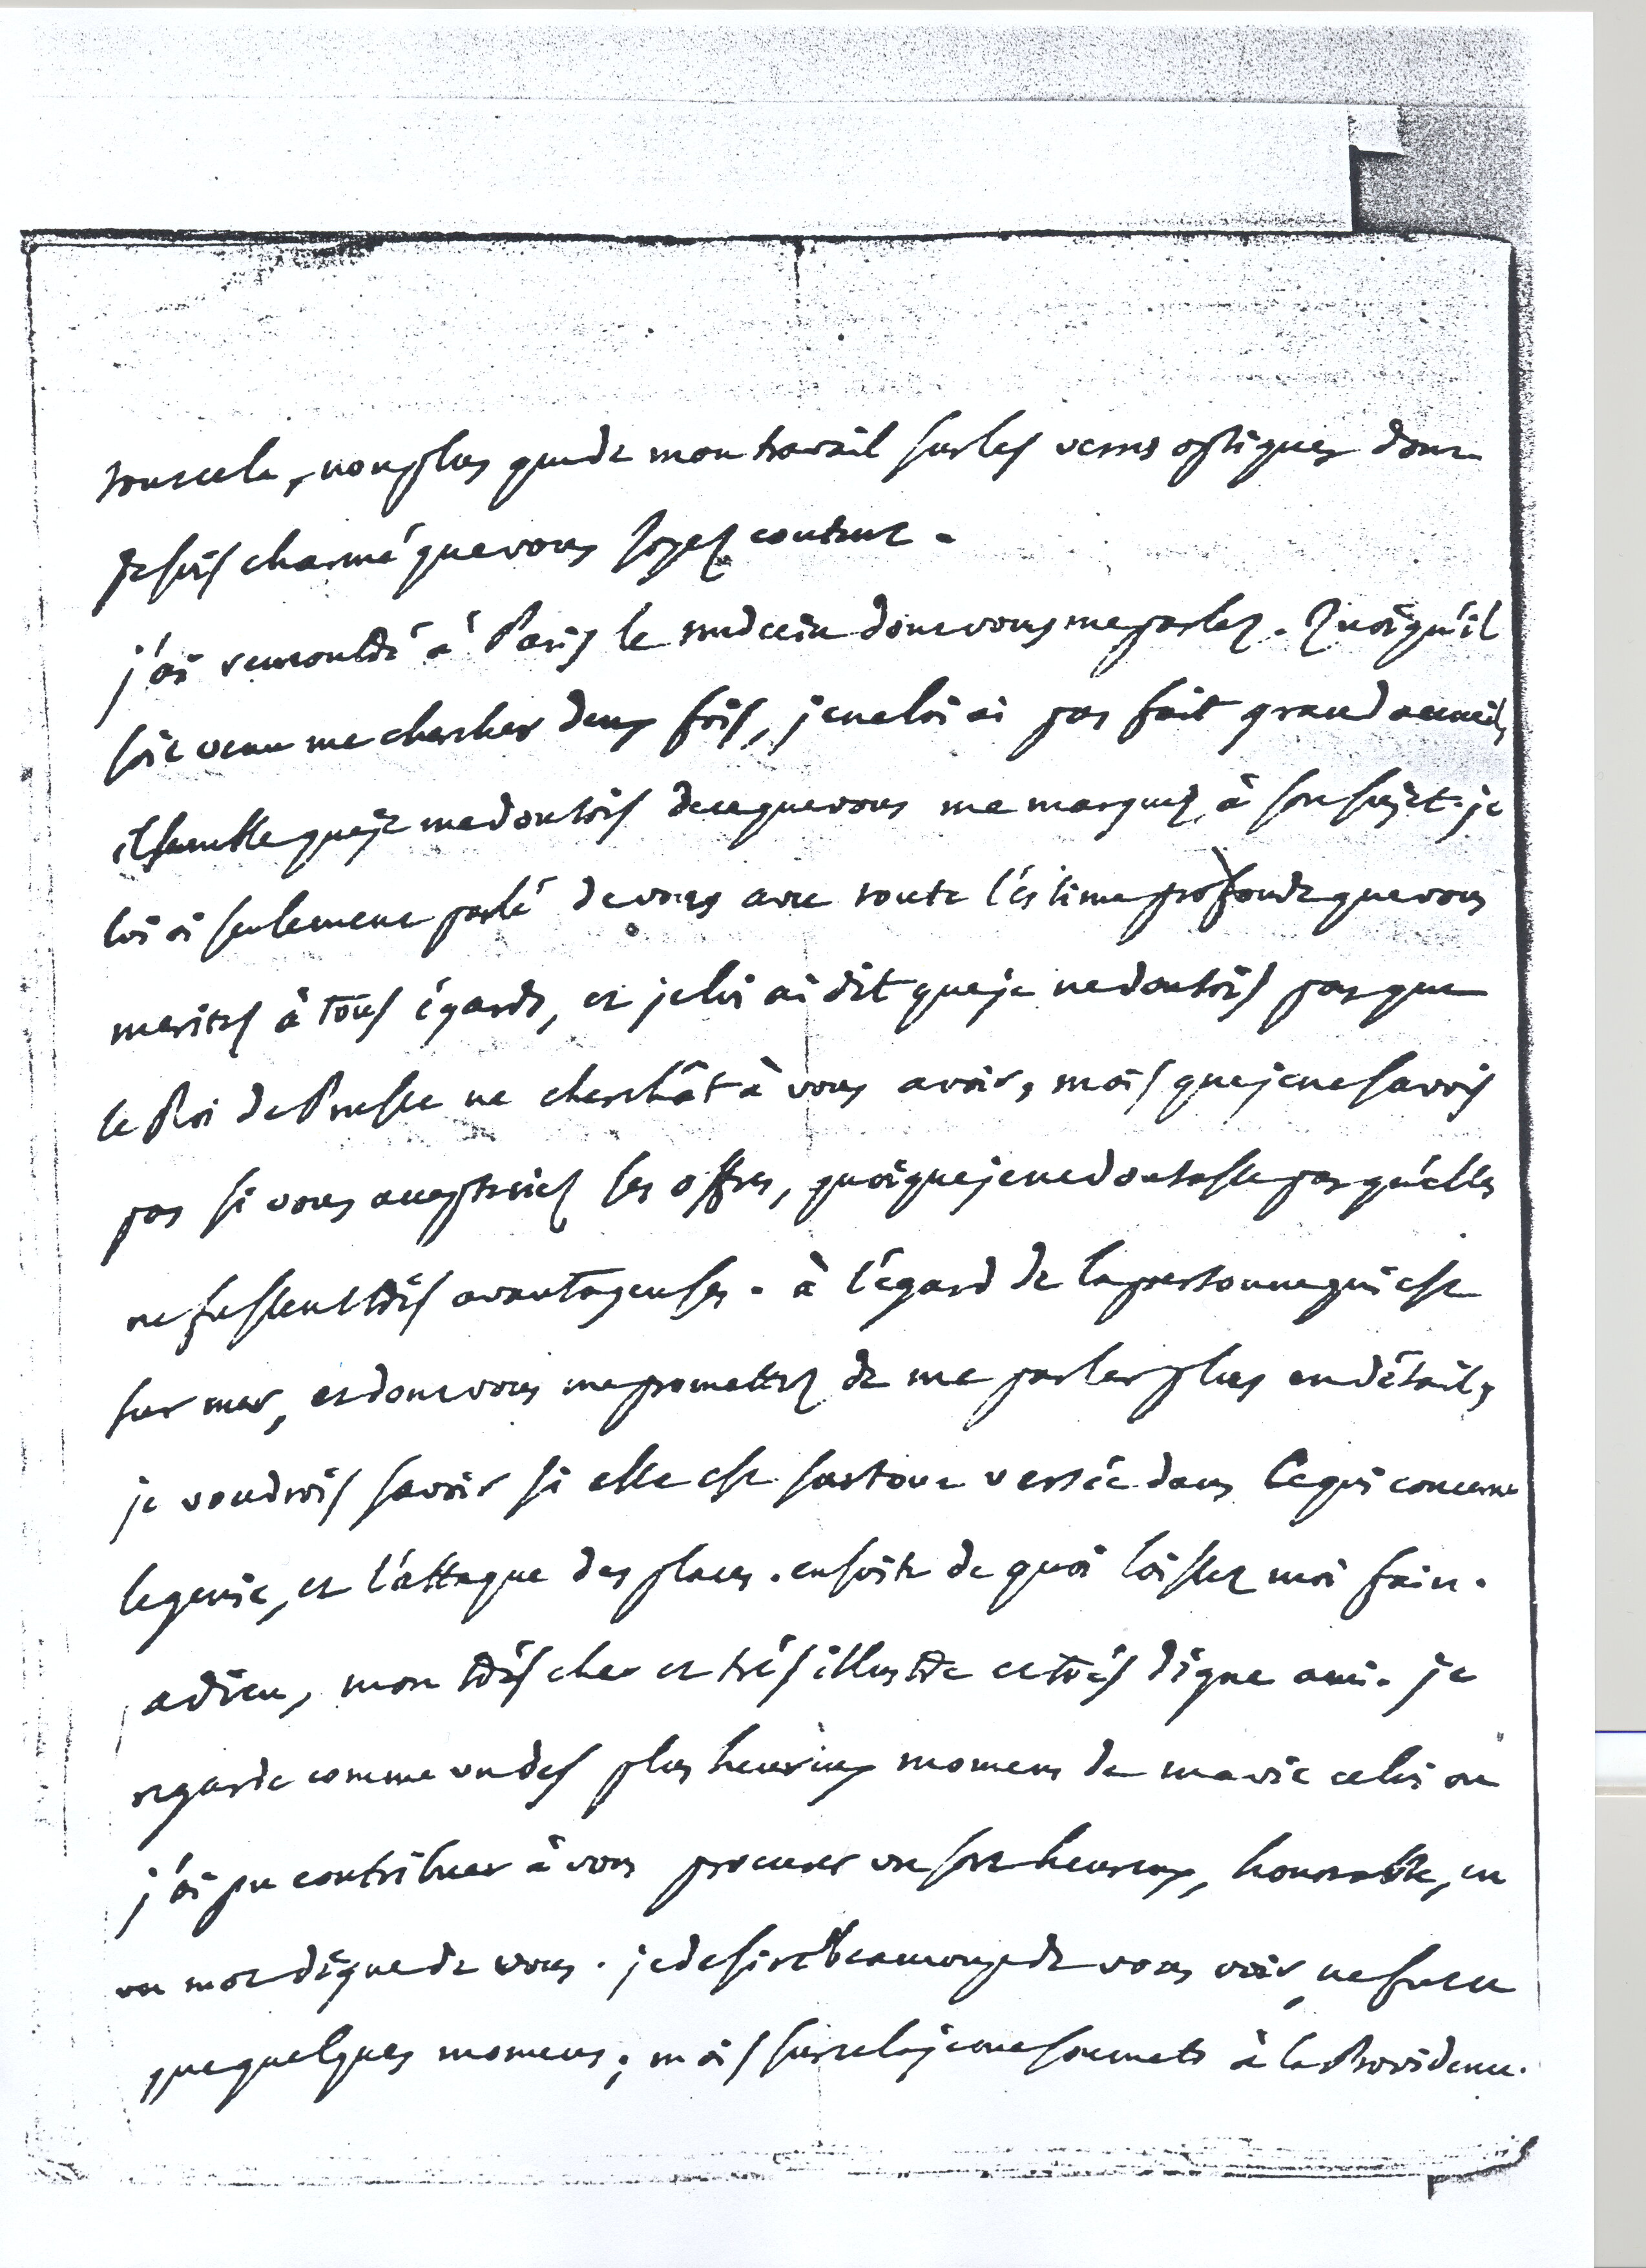 tout cela, non plus que de mon travail sur les verres optiques dont
je suis charmé que vous soyez content.
j'ai rencontré à Paris le medecin dont vous me parlez. Quoiqu'il
soit venu me chercher deux fois, je ne lui ai pas fait grand accueil,
il semble que je me doutois de ce que vous me marquez à son sujet. je
lui ai seulement parlé de vous avec toute l'éstime profonde que vous
meritez à tous égards, et je lui ai dit que je ne doutois pas que
le Roi de Prusse ne cherchât à vous avoir, mais que je ne savois
pas si vous accepteriez ses offres, quoique je ne doutasse pas qu'elles
ne fussent très avantageuses. à l'égard de la personne qui est
sur mer, et dont vous me promettez de me parler plus en détail,
je voudrois savoir si elle est surtout versée dans ce qui concerne
le genie, et l'attaque des places. ensuite de quoi laissez moi faire.
adieu, mon très cher et très illustre et très digne ami. je
regarde comme un des plus heureux momens de ma vie celui ou
j'ai pu contribuer à vous procurer un sort heureux, honorable, en
un mot digne de vous. je desire beaucoup de vous voir, ne fut ce
que quelques momens; mais sur cela je me soumets à la Providence.